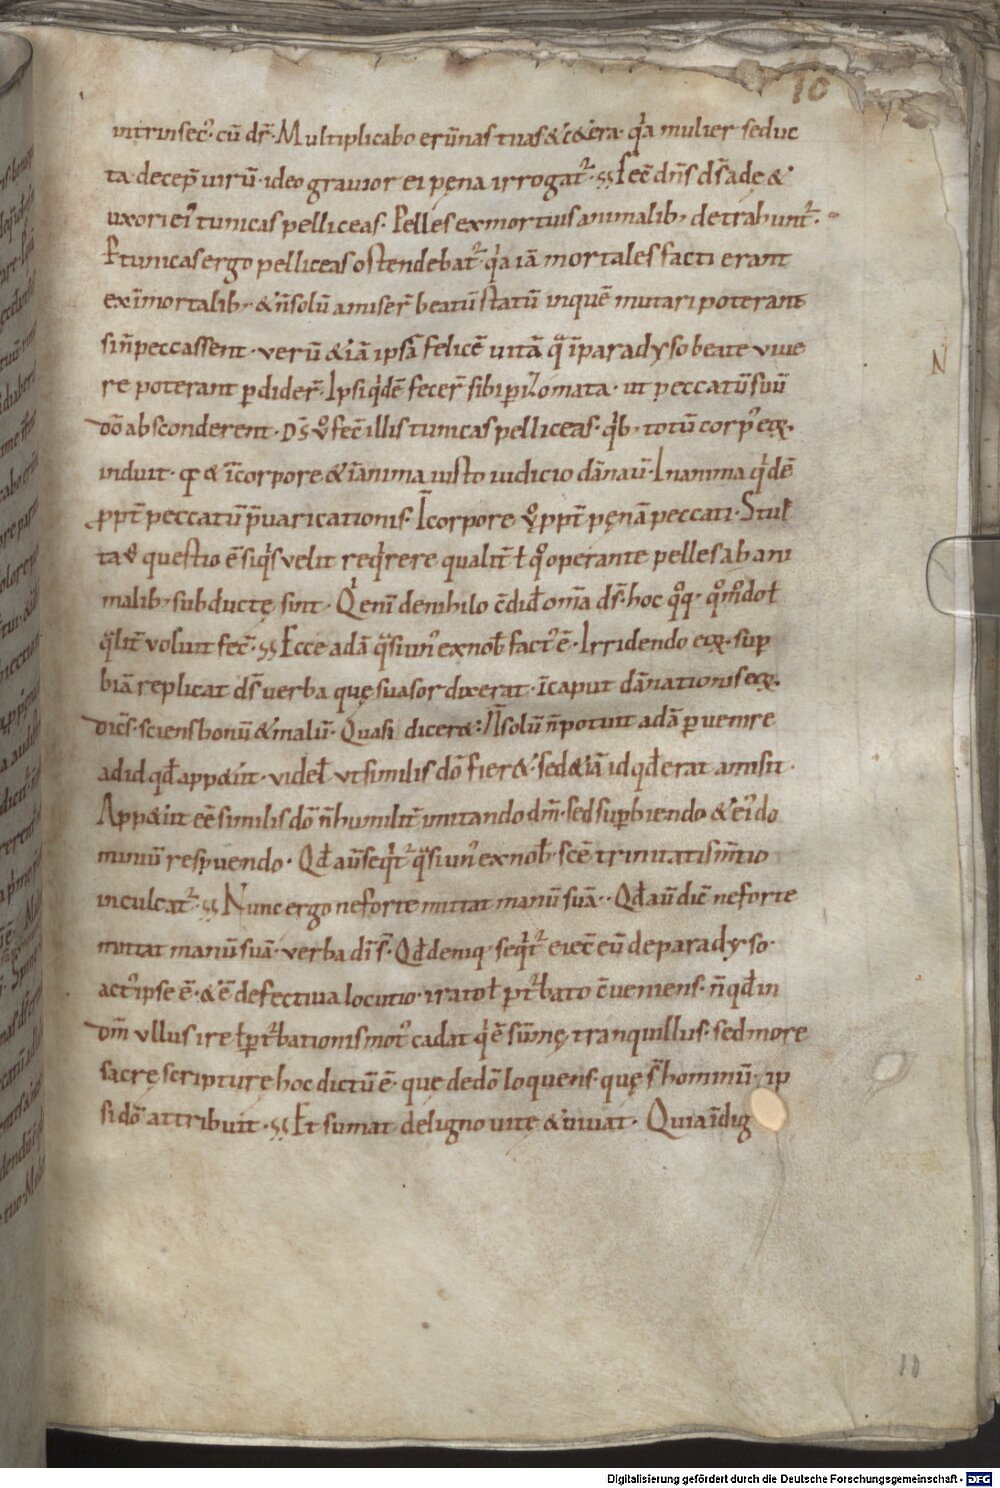 10
intrinsec᷒· cū dr̄· Multiplicabo erūnas tuas & cet̄era· qͥa mulier seduc
ta decep̄ uirū· ideo grauior ei pęna irrogat᷑· Fec̄ dn̄s ds̄ adę &
uxori ei᷒ tunicas pelliceas· Pelles ex mortuis animalib; detrahunt᷑·
P tunicas ergo pelliceas ostendebat᷑ qͥa iā mortales facti erant
ex īmortalib; & n̄ solū amiser̄ beatū statū in quē mutari poterant
si n̄ peccassent· uerū & iā ipsā felicē uitā qͣ ī paradyso beate uiue
re poterant ꝑdider̄· Ipsi qͥdē fecer̄ sibi ꝑizomata· ut peccatū suū
do᷒ absconderent· Ds̄ u᷒ fec̄ illis tunicas pelliceas· qͥb; totū corp᷒ eoꝝ
induit· qꝫ & ī corpore & ī anima iusto iudicio dānau᷑· In anima qͥdē
ꝓpt̄ peccatū p̄uaricationis· Ī corpore u᷒ ꝓpt̄ pęnā peccati· Stul
ta u᷒ questio ē siqͥs velit reqͥrere qualit̄ ł qͦ operante pelles ab ani
malib; subductę sint· Qͥ eni᷒ de nihilo c̄did̄ om̄a ds̄· hoc qͦq; qͦm̊dol̄
qͣlit̄ voluit fec̄· Ecce adā qͣsi un᷒ ex nob̄ fact᷒ ē· Irridendo eoꝝ suꝑ
biā replicat ds̄ uerba quę suasor dixerat· ī caput dānationis eoꝝ
dic̄s· sciens bonū & malū· Quasi diceret: N̄ solū n̄ potuit adā ꝑuenire
ad id qd̄ appetiit· videl̄ vt similis dō fieret· sed & iā id qd̄ erat amisit·
Appetiit ee᷒ similis dō n̄ humilit̄ imitando dm̄· sed suꝑbiendo & ei᷒ do
miniū respuendo· Qd̄ aū seqͥt᷑ qͣsi un᷒ ex nob̄· scē trinitatis m̄tio
inculcat᷑· Nunc ergo ne forte mittat manū suā·· Qd̄ aū dic̄ ne forte
mittat manū suā· verba di᷒ s̄· Qd̄ deniq; seqͥt᷑ eiec̄ eū de paradyso·
act᷒ ipse ē· & ē defectiua locutio· irato ł ꝑt᷑bato c̄ueniens· n̄ qd̄ in
dm̄ vllus ire ł ꝑt᷑bationis mot᷒ cadat qͥ ē sūmę tranquillus· sed more
sacrę scripturę hoc dictū ē· quę de dō loquens· quę s̄ hominū· ip
si dō attribuit· Et sumat de ligno uitę & uiuat· Quia īdig
N
10
Digitalisierung gefördert durch die Deutsche Forschungsgemeinschaft - DFG